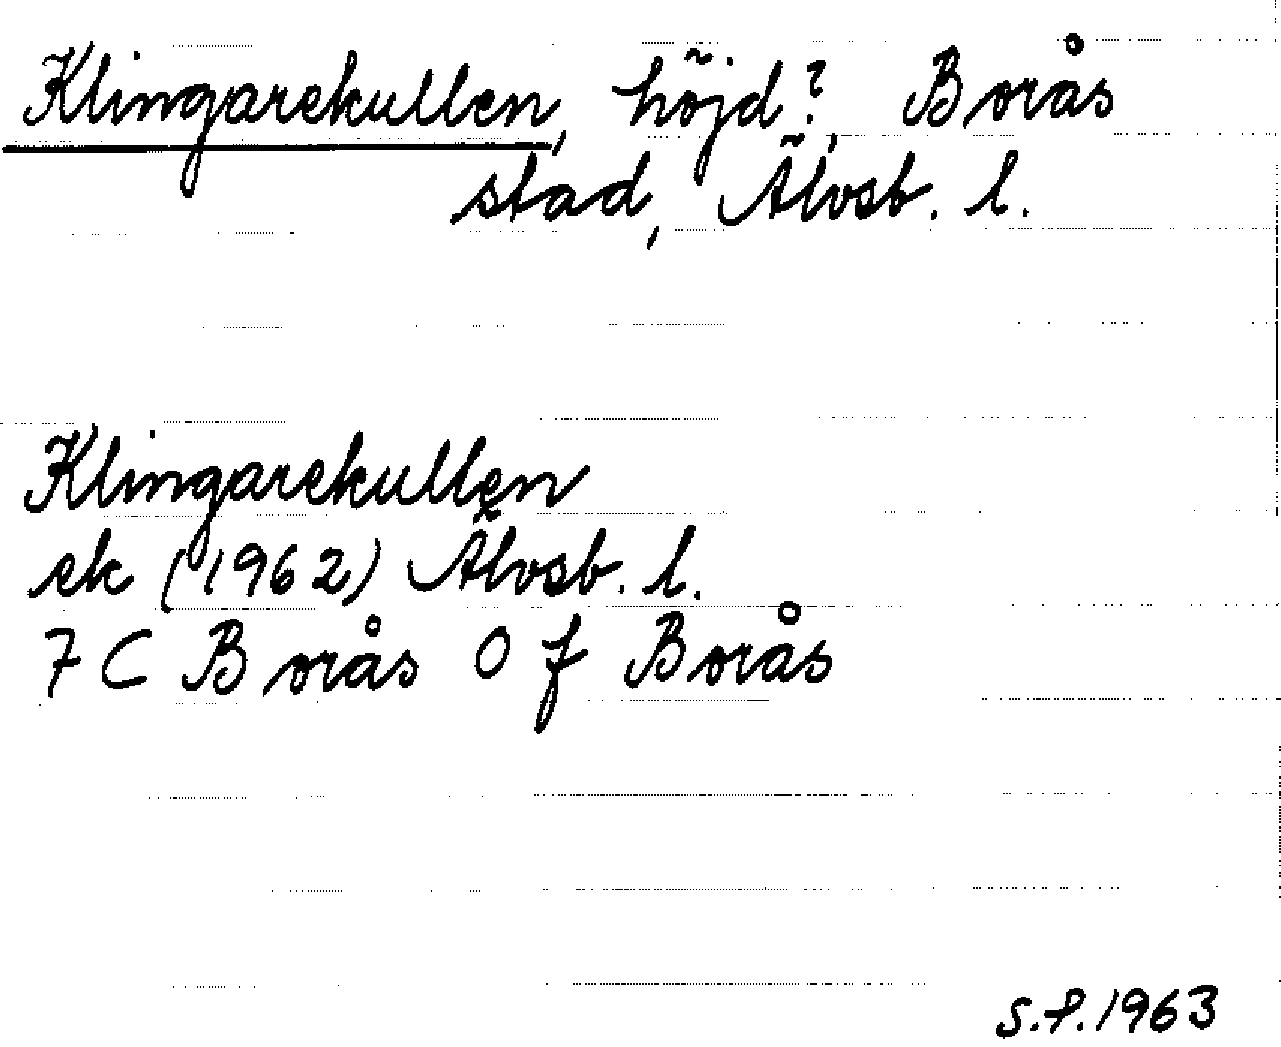 Klingarekullen, höjd?, Borås
stad, Älvsb. l.
Klingarekullen
ek (1962) Älvsb. l.
7 C Borås 0 f Borås
S.P. 1963